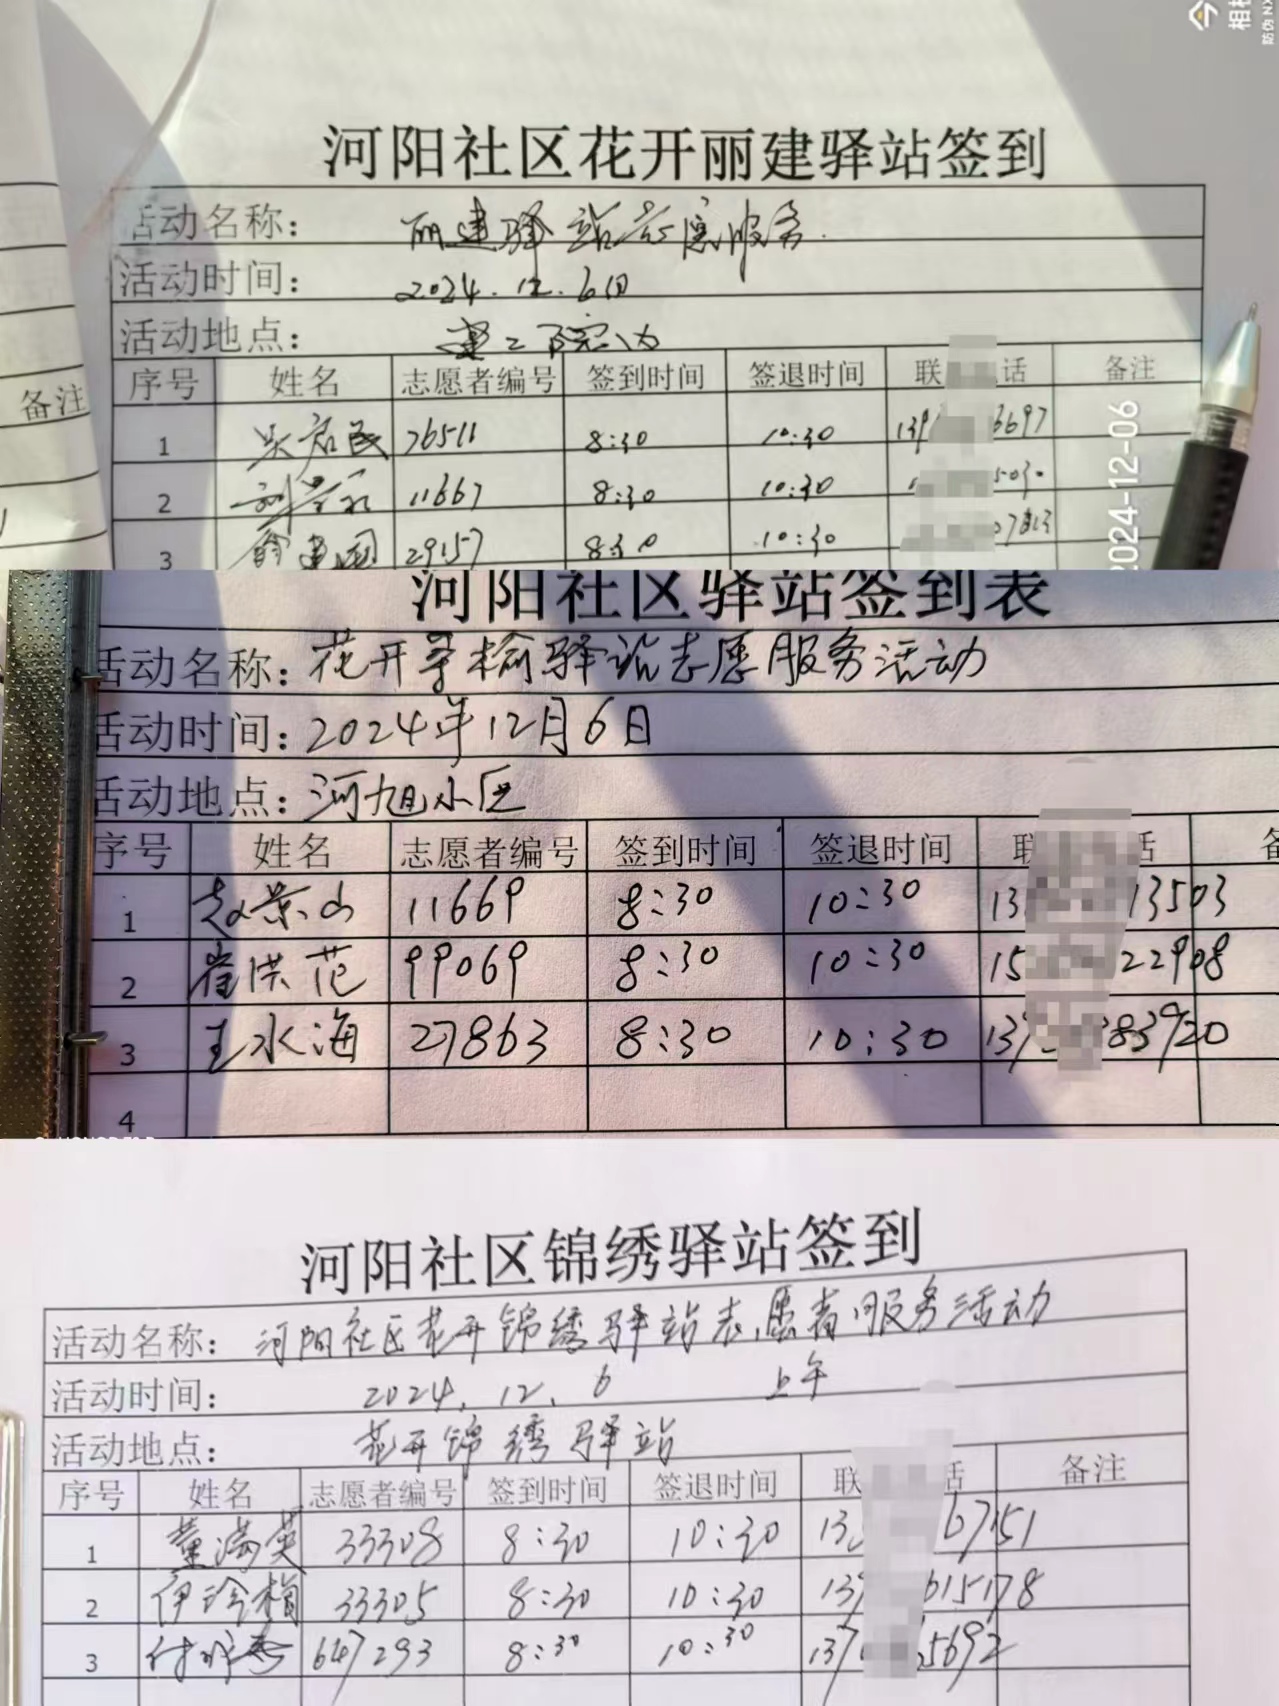 河阳社区花开丽建驿站签到
活动名称: 丽建驿站志愿服务.
活动时间: 2024.12.6日
活动地点: 建二院内
序号 姓名 志愿者编号 签到时间 签退时间 联 话 备注
1 民 26511 8:30 10:30 139 6697
2 11667 8:30 10:30 5030
3 建国 29157 8:30 10:30
备注
2024-12-06
河阳社区驿站签到表
活动名称: 花开寻榆驿站志愿服务活动
活动时间: 2024年12月6日
活动地点: 河旭小区
序号 姓名 志愿者编号 签到时间 签退时间 联 话
1 赵景山 11669 8:30 10:30 13 13503
2 崔洪范 99069 8:30 10:30 15 22908
3 王水海 27863 8:30 10:30 13 83920
4
河阳社区锦绣驿站签到
活动名称: 河阳社区花开锦绣驿站志愿者服务活动
活动时间: 2024.12.6 上午
活动地点: 花开锦绣驿站
序号 姓名 志愿者编号 签到时间 签退时间 联 话 备注
1 董满英 33308 8:30 10:30 13 67151
2 伊玲梅 33305 8:30 10:30 13 615178
3 付 647293 8:30 10:30 137 5692